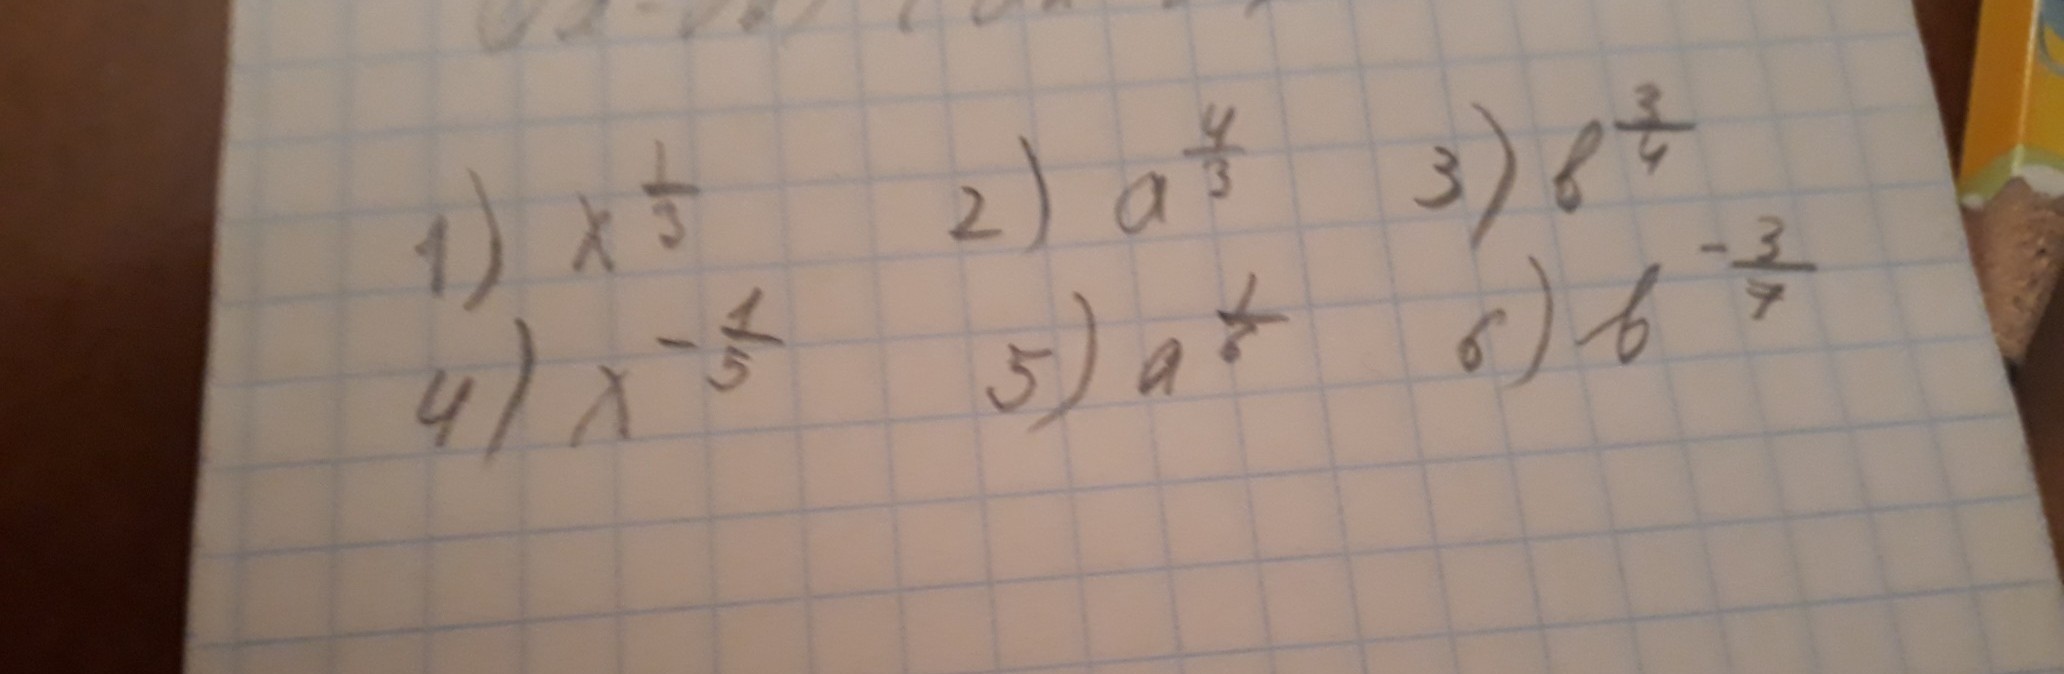 1) x^{\frac{1}{3}} 2) a^{\frac{4}{3}} 3) b^{\frac{3}{4}}
4) x^{-\frac{1}{5}} 5) a^{\frac{1}{6}} 6) b^{-\frac{3}{7}}